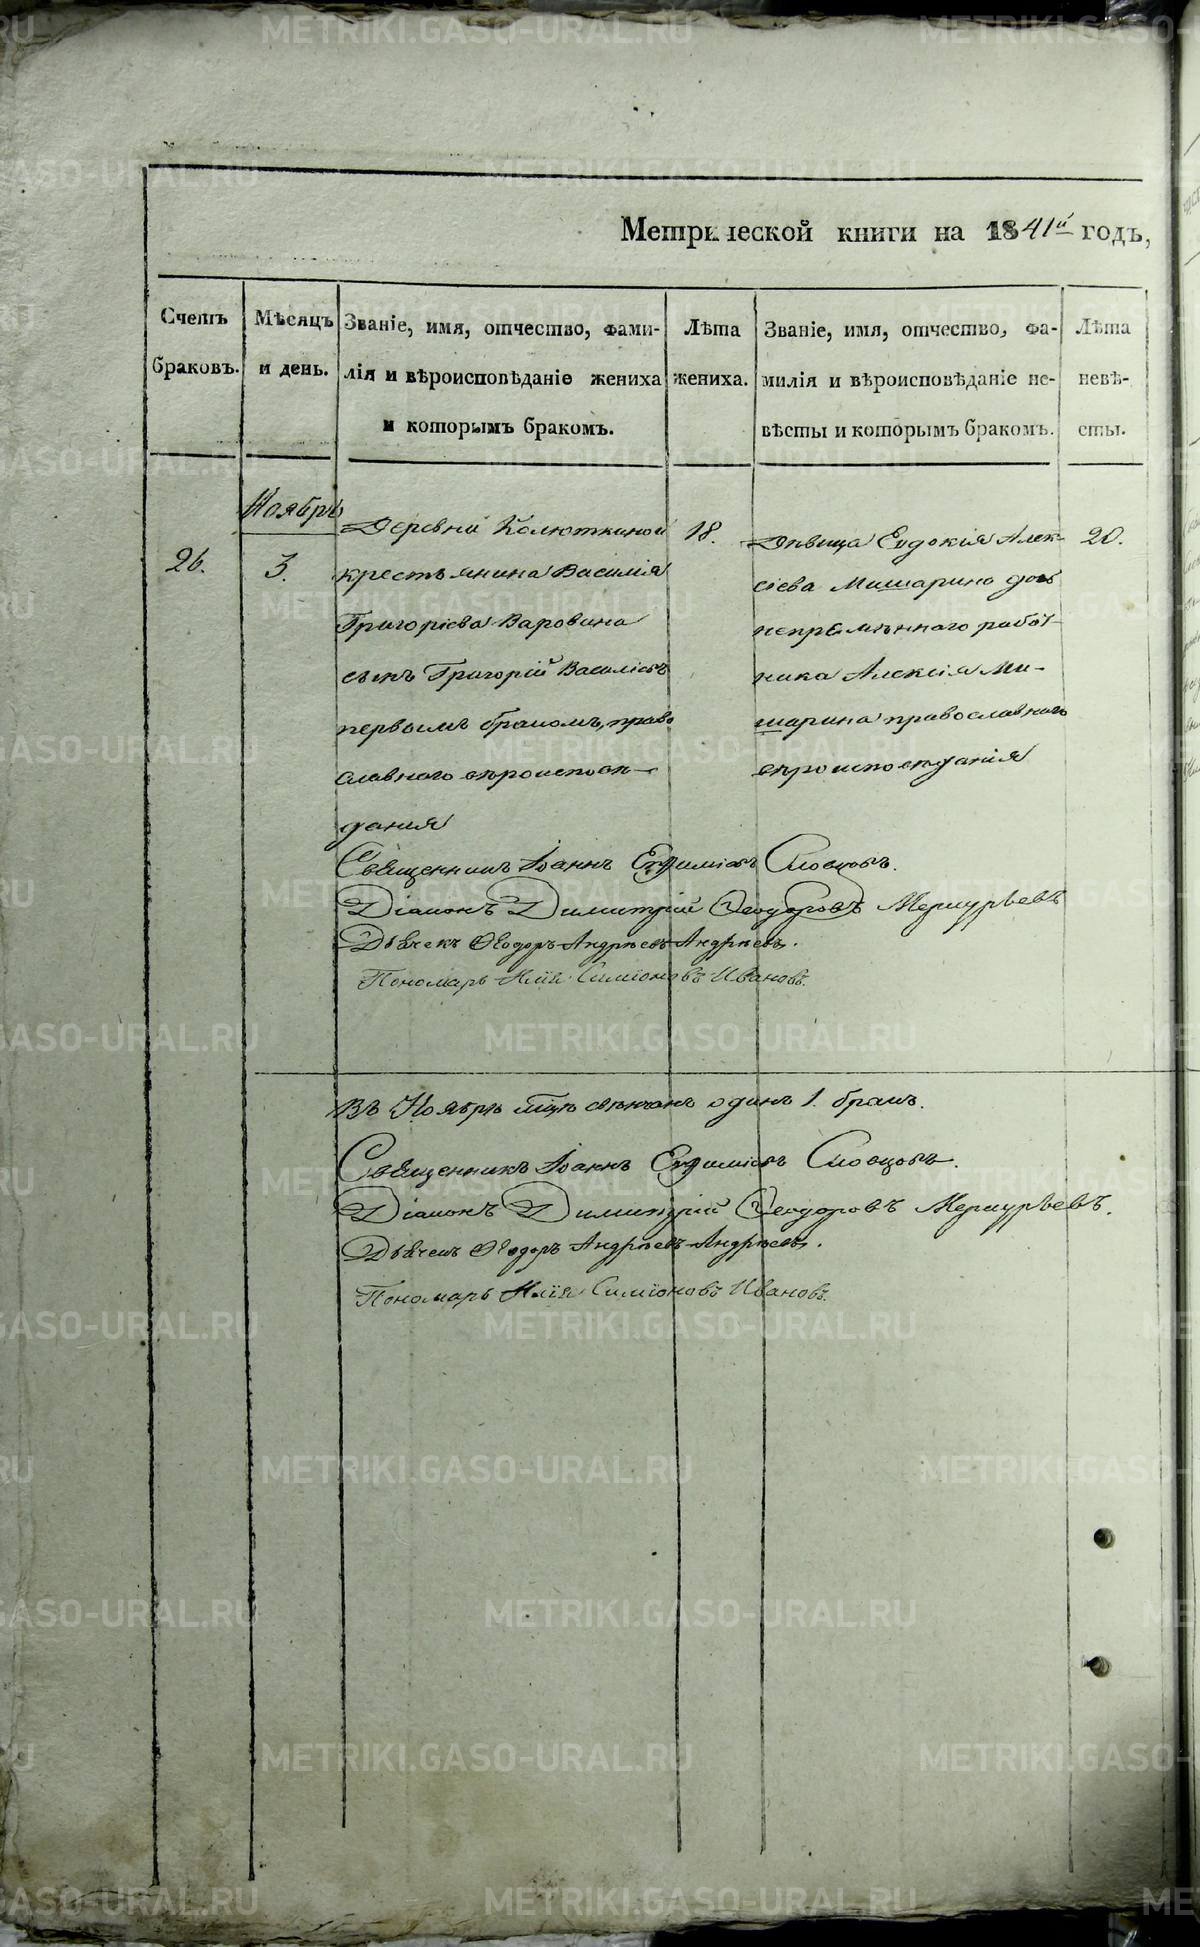 Метрической книги на 1841й годъ,
Счетъ браковъ.
Мѣсяцъ и день.
Званіе, имя, отчество, фами-
лія и вѣроисповѣданіе жениха
и которымъ бракомъ.
Лѣта жениха.
Званіе, имя, отчество, фа-
милія и вѣроисповѣданіе не-
вѣсты и которымъ бракомъ.
Лѣта невѣ-
сты.
26.
Ноябрь
3.
Деревни Колюткиной
крестьянина Василія
Григоріева Варовина
сынъ Григорій Василіевъ
первымъ бракомъ, право
славнаго вѣроисповѣ-
данія
18.
Дѣвица Евдокія Алек-
сіева Мишарина дочь
непремѣннаго работ-
ника Алексія Ми-
шарина православнаго
вѣроисповѣданія
20.
Священникъ Іоаннъ Евфиміевъ Словцовъ.
Діаконъ Димитрій Ѳеодоровъ Меркурьевъ
Дьячекъ Ѳеодоръ Андреевъ Андреевъ.
Пономарь Илія Симіоновъ Ивановъ.
Въ Ноябрѣ мцѣ свѣнчанъ одинъ 1. бракъ.
Священникъ Іоаннъ Евфиміевъ Словцовъ.
Діаконъ Димитрій Ѳеодоровъ Меркурьевъ.
Дьячекъ Ѳеодоръ Андреевъ Андреевъ.
Пономарь Илія Симіоновъ Ивановъ.
METRIKI.GASO-URAL.RU